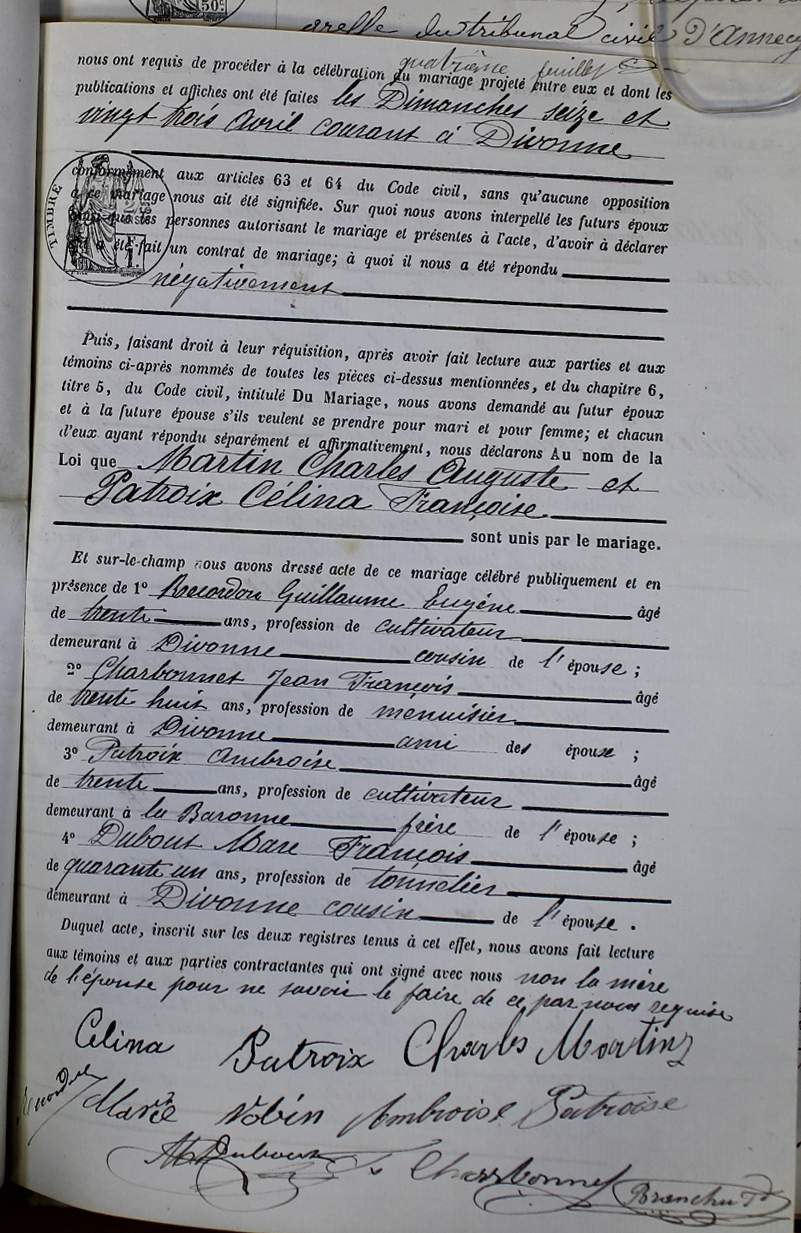 50c
du tribunal civil D'Annecy
quatrième feuillet
nous ont requis de procéder à la célébration du mariage projeté entre eux et dont les
publications et affiches ont été faites les Dimanches seize et
vingt trois avril courant à Divonne
conformément aux articles 63 et 64 du Code civil, sans qu'aucune opposition
à ce mariage nous ait été signifiée. Sur quoi nous avons interpellé les futurs époux
ainsi que les personnes autorisant le mariage et présentes à l'acte, d'avoir à déclarer
s'il a été fait un contrat de mariage; à quoi il nous a été répondu
TIMBRE
négativement
Puis, faisant droit à leur réquisition, après avoir fait lecture aux parties et aux
témoins ci-après nommés de toutes les pièces ci-dessus mentionnées, et du chapitre 6,
titre 5, du Code civil, intitulé Du Mariage, nous avons demandé au futur époux
et à la future épouse s'ils veulent se prendre pour mari et pour femme; et chacun
d'eux ayant répondu séparément et affirmativement, nous déclarons Au nom de la
Loi que Martin Charles Auguste et
Patroix Célina Françoise
sont unis par le mariage.
Et sur-le-champ nous avons dressé acte de ce mariage célébré publiquement et en
présence de 1° Recordon Guillaume Eugène âgé
de trente ans, profession de cultivateur
demeurant à Divonne cousin de l'épouse ;
2° Charbonnet Jean François âgé
de trente huit ans, profession de menuisier
demeurant à Divonne ami des épouse ;
3° Patroix Ambroise âgé
de trente ans, profession de cultivateur
demeurant à la Baronne frère de l'épouse ;
4° Dubout Marc François âgé
de quarante un ans, profession de tonnelier
demeurant à Divonne cousin de l'épouse .
Duquel acte, inscrit sur les deux registres tenus à cet effet, nous avons fait lecture
aux témoins et aux parties contractantes qui ont signé avec nous non la mère
de l'épouse pour ne savoir le faire de ce par nous requise
Celina Patroix Charles Martin
Recordon Marie Robin Ambroise Patroix
Dubout Charbonnet Branchu